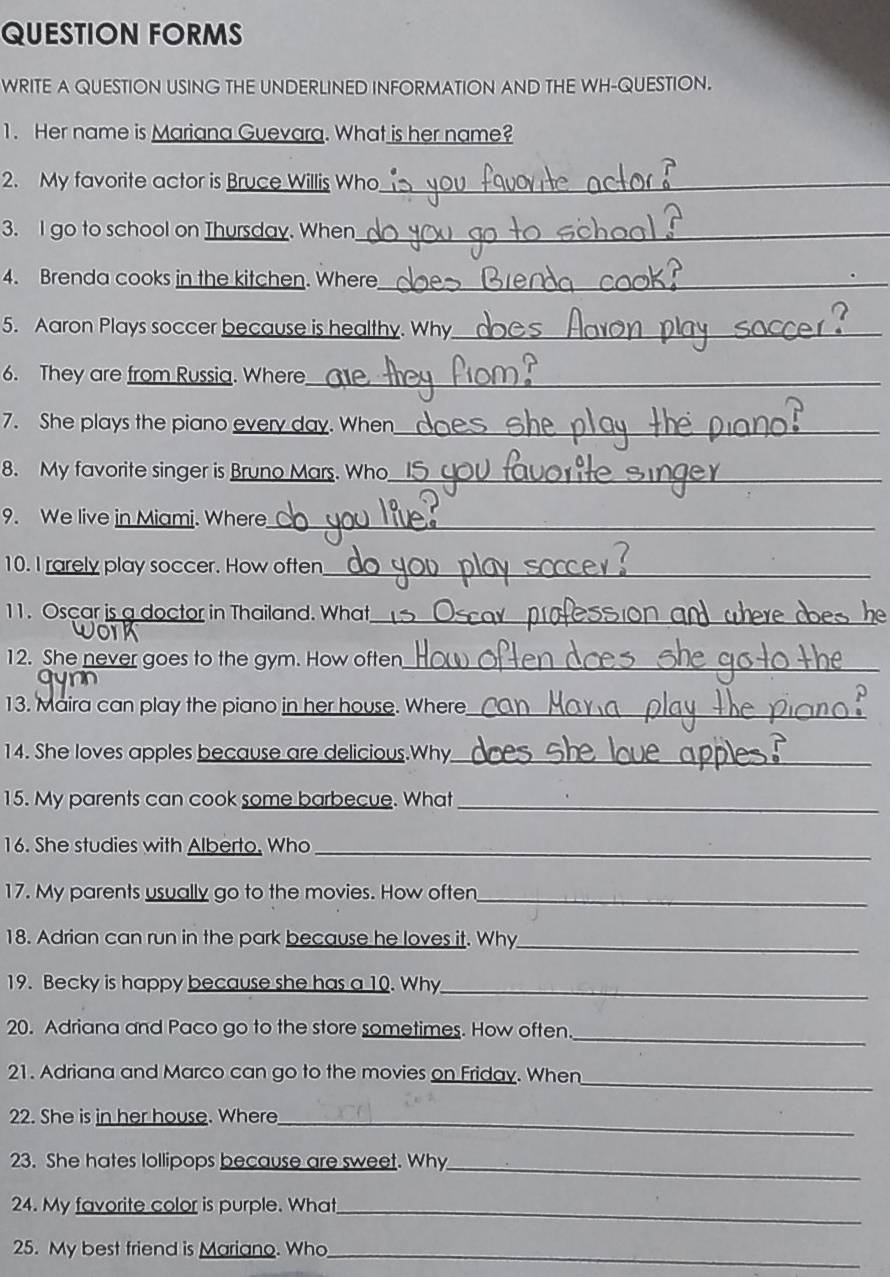 QUESTION FORMS
WRITE A QUESTION USING THE UNDERLINED INFORMATION AND THE WH-QUESTION.
1. Her name is Mariana Guevara. What is her name?
2. My favorite actor is Bruce Willis Who is you favorite actor?
3. I go to school on Thursday. When do you go to school?
4. Brenda cooks in the kitchen. Where does Brenda cook?
5. Aaron Plays soccer because is healthy. Why does Aaron play soccer?
6. They are from Russia. Where are they from?
7. She plays the piano every day. When does she play the piano?
8. My favorite singer is Bruno Mars. Who is you favorite singer
9. We live in Miami. Where do you live?
10. I rarely play soccer. How often do you play soccer?
11. Oscar is a doctor in Thailand. What is Oscar profession and where does he
work
12. She never goes to the gym. How often How often does she go to the
gym
13. Maira can play the piano in her house. Where can Maria play the piano?
14. She loves apples because are delicious.Why does she love apples?
15. My parents can cook some barbecue. What
16. She studies with Alberto. Who
17. My parents usually go to the movies. How often
18. Adrian can run in the park because he loves it. Why
19. Becky is happy because she has a 10. Why
20. Adriana and Paco go to the store sometimes. How often.
21. Adriana and Marco can go to the movies on Friday. When
22. She is in her house. Where
23. She hates lollipops because are sweet. Why
24. My favorite color is purple. What
25. My best friend is Mariano. Who